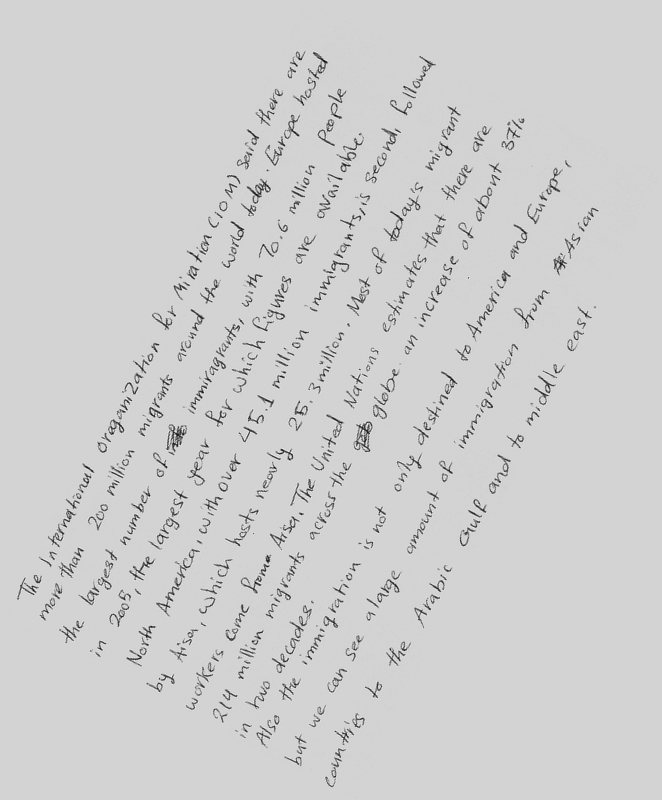 The International oreganization for Miration (IOM) said there are
more than 200 million migrants around the world today. Europe hosted
the largest number of immiragrants, with 70.6 million People
in 2005, the largest year for which figures are available.
North America, with over 45.1 million immigrants, is second, followed
by Aisa, which hosts nearly 25.3 million. Most of today's migrant
workers come frome Aisa. The United Nations estimates that there are
214 million migrants across the globe. an increase of about 37%
in two decades.
Also the immigration is not only destined to America and Europe,
but we can see a large amount of immigration from Asian
countries to the Arabic Gulf and to middle east.